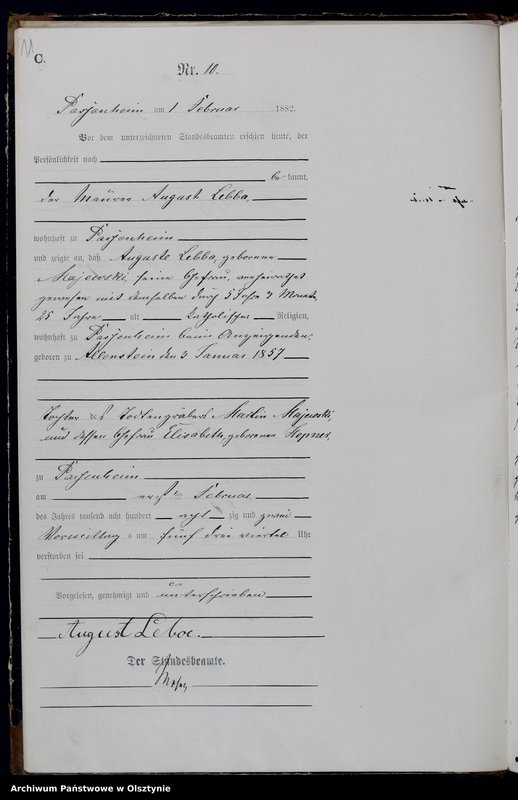 11
C.
Nr. 10.
Passenheim am 1 Februar 1882.
Vor dem unterzeichneten Standesbeamten erschien heute, der
Persönlichkeit nach
bekannt,
der Maurer August Lebba,
wohnhaft zu Passenheim
und zeigte an, daß Auguste Lebba, geborene
Majewski, seine Ehefrau, verheirathet
gewesen mit demselben durch 5 Jahre 3 Monate,
25 Jahre alt katholischer Religion,
wohnhaft zu Passenheim beim Anzeigenden,
geboren zu Allenstein den 3 Januar 1857
Tochter des Todtengräbers Martin Majewski,
und dessen Ehefrau Elisabeth, geborenen
zu Passenheim
am ersten Februar
des Jahres tausend acht hundert achtzig und zwei
Vormittag s um fünf drei viertel Uhr
verstorben sei
Vorgelesen, genehmigt und unterschrieben
August
Der Standesbeamte.
Archiwum Państwowe w Olsztynie